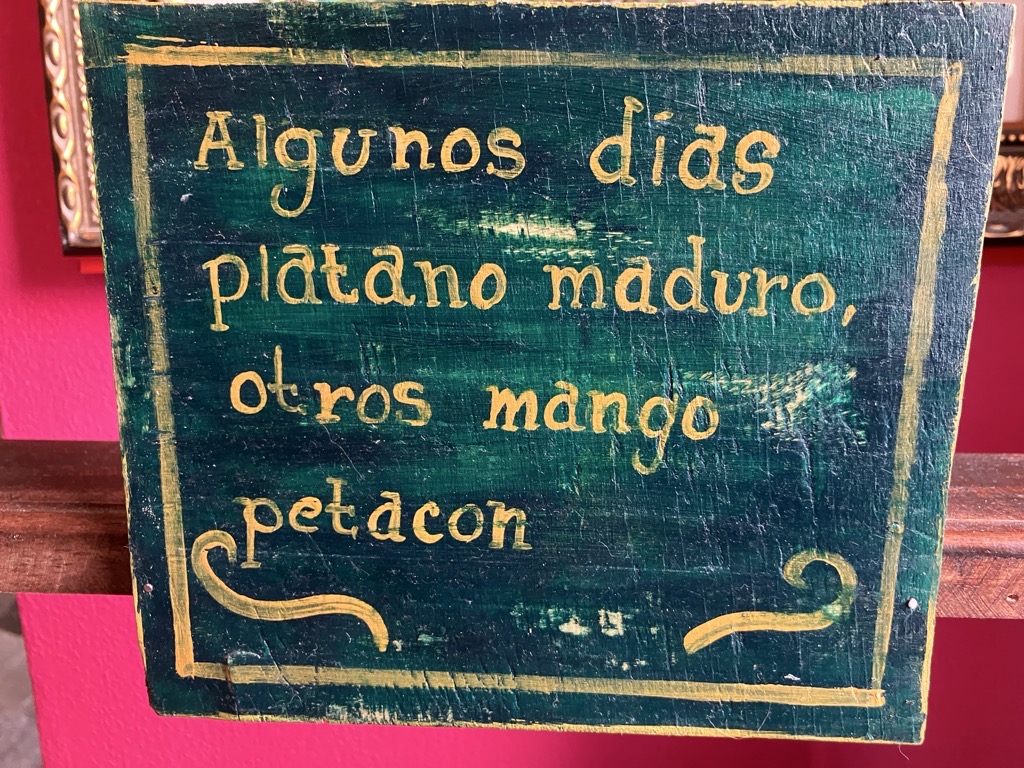 Algunos días
platano maduro,
otros mango
petacon